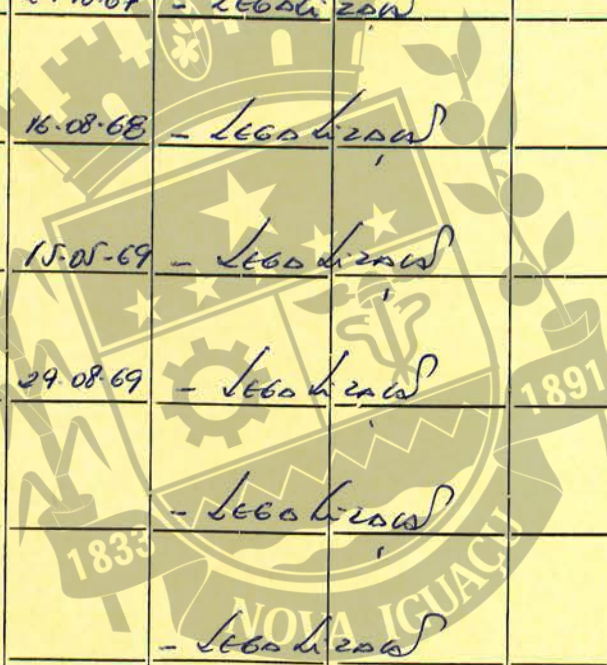 - Legalização
16-08-68 - Legalização
15-05-69 - Legalização
29-08-69 - Legalização
- Legalização
- Legalização
1833 NOVA IGUAÇU 1891